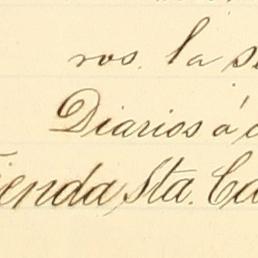 ros. la s
Diarios á
ienda Sta. Ca